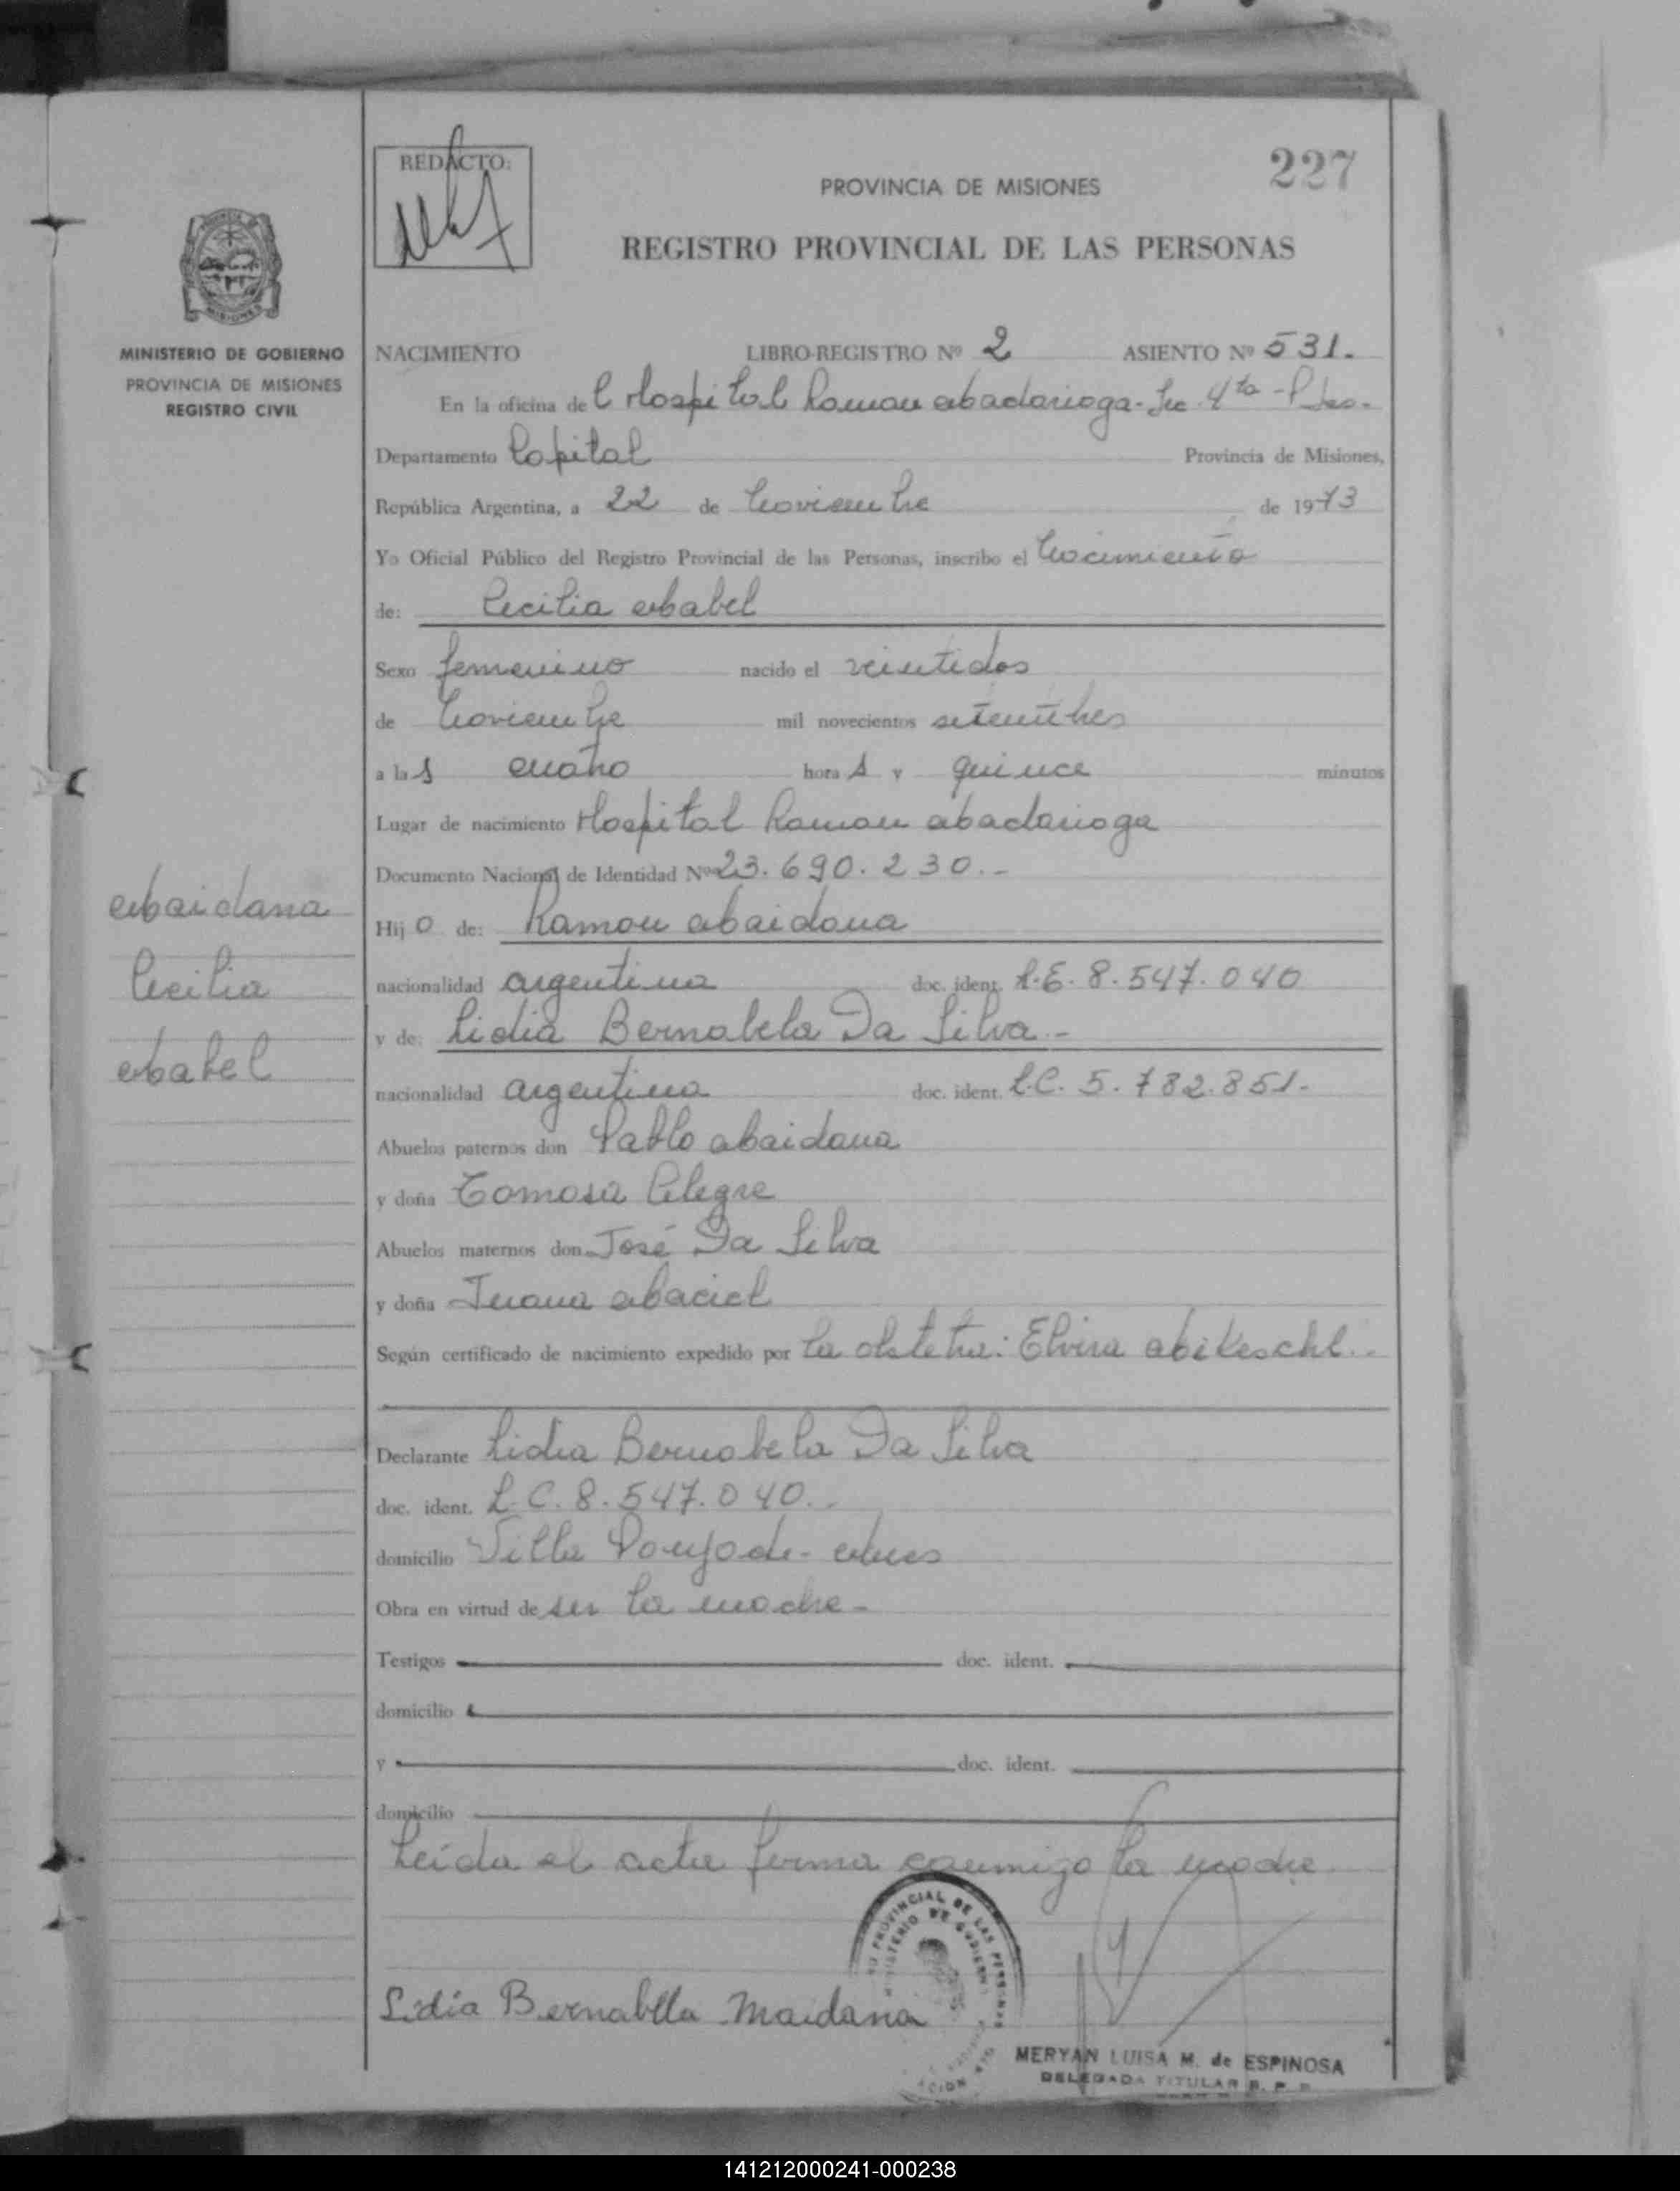 REDACTO:
227
PROVINCIA DE MISIONES
REGISTRO PROVINCIAL DE LAS PERSONAS
MINISTERIO DE GOBIERNO
PROVINCIA DE MISIONES
REGISTRO CIVIL
NACIMIENTO LIBRO-REGISTRO Nº 2 ASIENTO Nº 531.
En la oficina del Hospital Ramon Madariaga - Sec. 4ta - Pdas.
Departamento Capital Provincia de Misiones,
República Argentina, a 22 de Noviembre de 1973
Yo Oficial Público del Registro Provincial de las Personas, inscribo el Nacimiento
de: Cecilia Mabel
Sexo femenino nacido el veintidos
de Noviembre mil novecientos setentitres
a las cuatro horas y quince minutos
Lugar de nacimiento Hospital Ramon Madariaga
Documento Nacional de Identidad Nº 23.690.230.-
Hijo de: Ramon Maidana
nacionalidad argentina doc. ident. L.E. 8.547.040
y de: Lidia Bernabela Da Silva.-
nacionalidad argentina doc. ident. L.C. 5.782.851.
Abuelos paternos don Pablo Maidana
y doña Tomasa Alegre
Abuelos maternos don José Da Silva
y doña Juana Maciel
Según certificado de nacimiento expedido por la obstetra: Elvira
Declarante Lidia Bernabela Da Silva
doc. ident. L.C. 8.547.040.
domicilio Villa
Obra en virtud de ser la madre -
Testigos doc. ident.
domicilio
y doc. ident.
domicilio
Leida el acta firma conmigo la madre
Maidana
Cecilia
Mabel
Lidia Bernabella Maidana
MERYAN LUISA M. de ESPINOSA
DELEGADA TITULAR R. P. P.
141212000241-000238